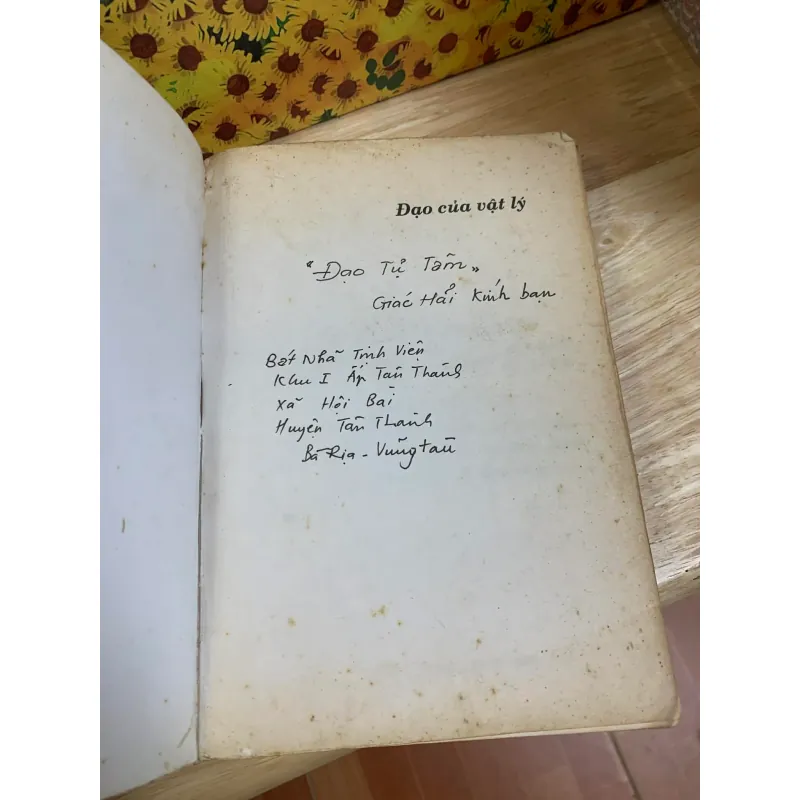 Đạo của vật lý
"Đạo Tự Tâm"
Giác Hải Kính bạn
Bát Nhã Tịnh Viện
Khu I Ấp Tân Thành
Xã Hội Bài
Huyện Tân Thành
Bà Rịa - Vũng tàu